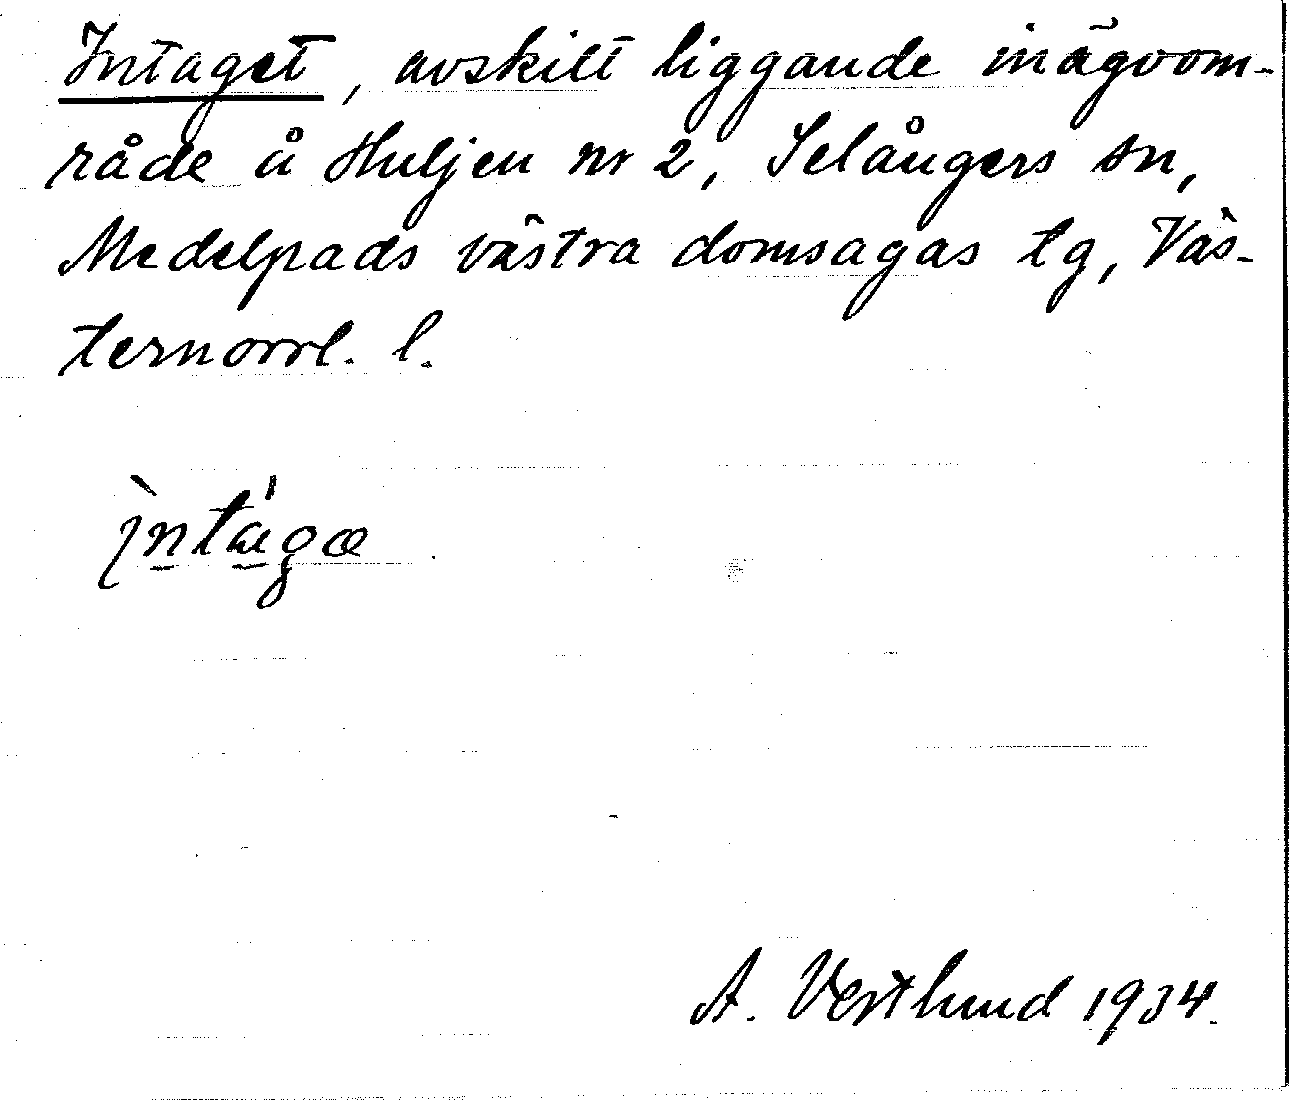 Intaget, avskilt liggande inägoom-
råde å Huljen nr 2, Selångers sn,
Medelpads västra domsagas tg, Väs-
ternorrl. l.
ı̀nta̍gæ
A. Vestlund 1934.